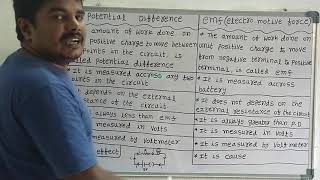 Potential Difference
amount of work done on
positive charge to move between
points in the circuit, is
called potential difference
It is measured accross any two
wires in the circuit
depends on the external
resistance of the circuit
always less than emf
is measured in volts
measured by voltmeter
effect
emf (electro motive force)
The amount of work done on
unit positive charge to move
from negative terminal to positive
terminal, is called emf
It is measured across
battery
It does not depends on the
external resistance of the circuit
It is always greater than P.D
It is measured in volts
It is measured by voltmeter
It is cause